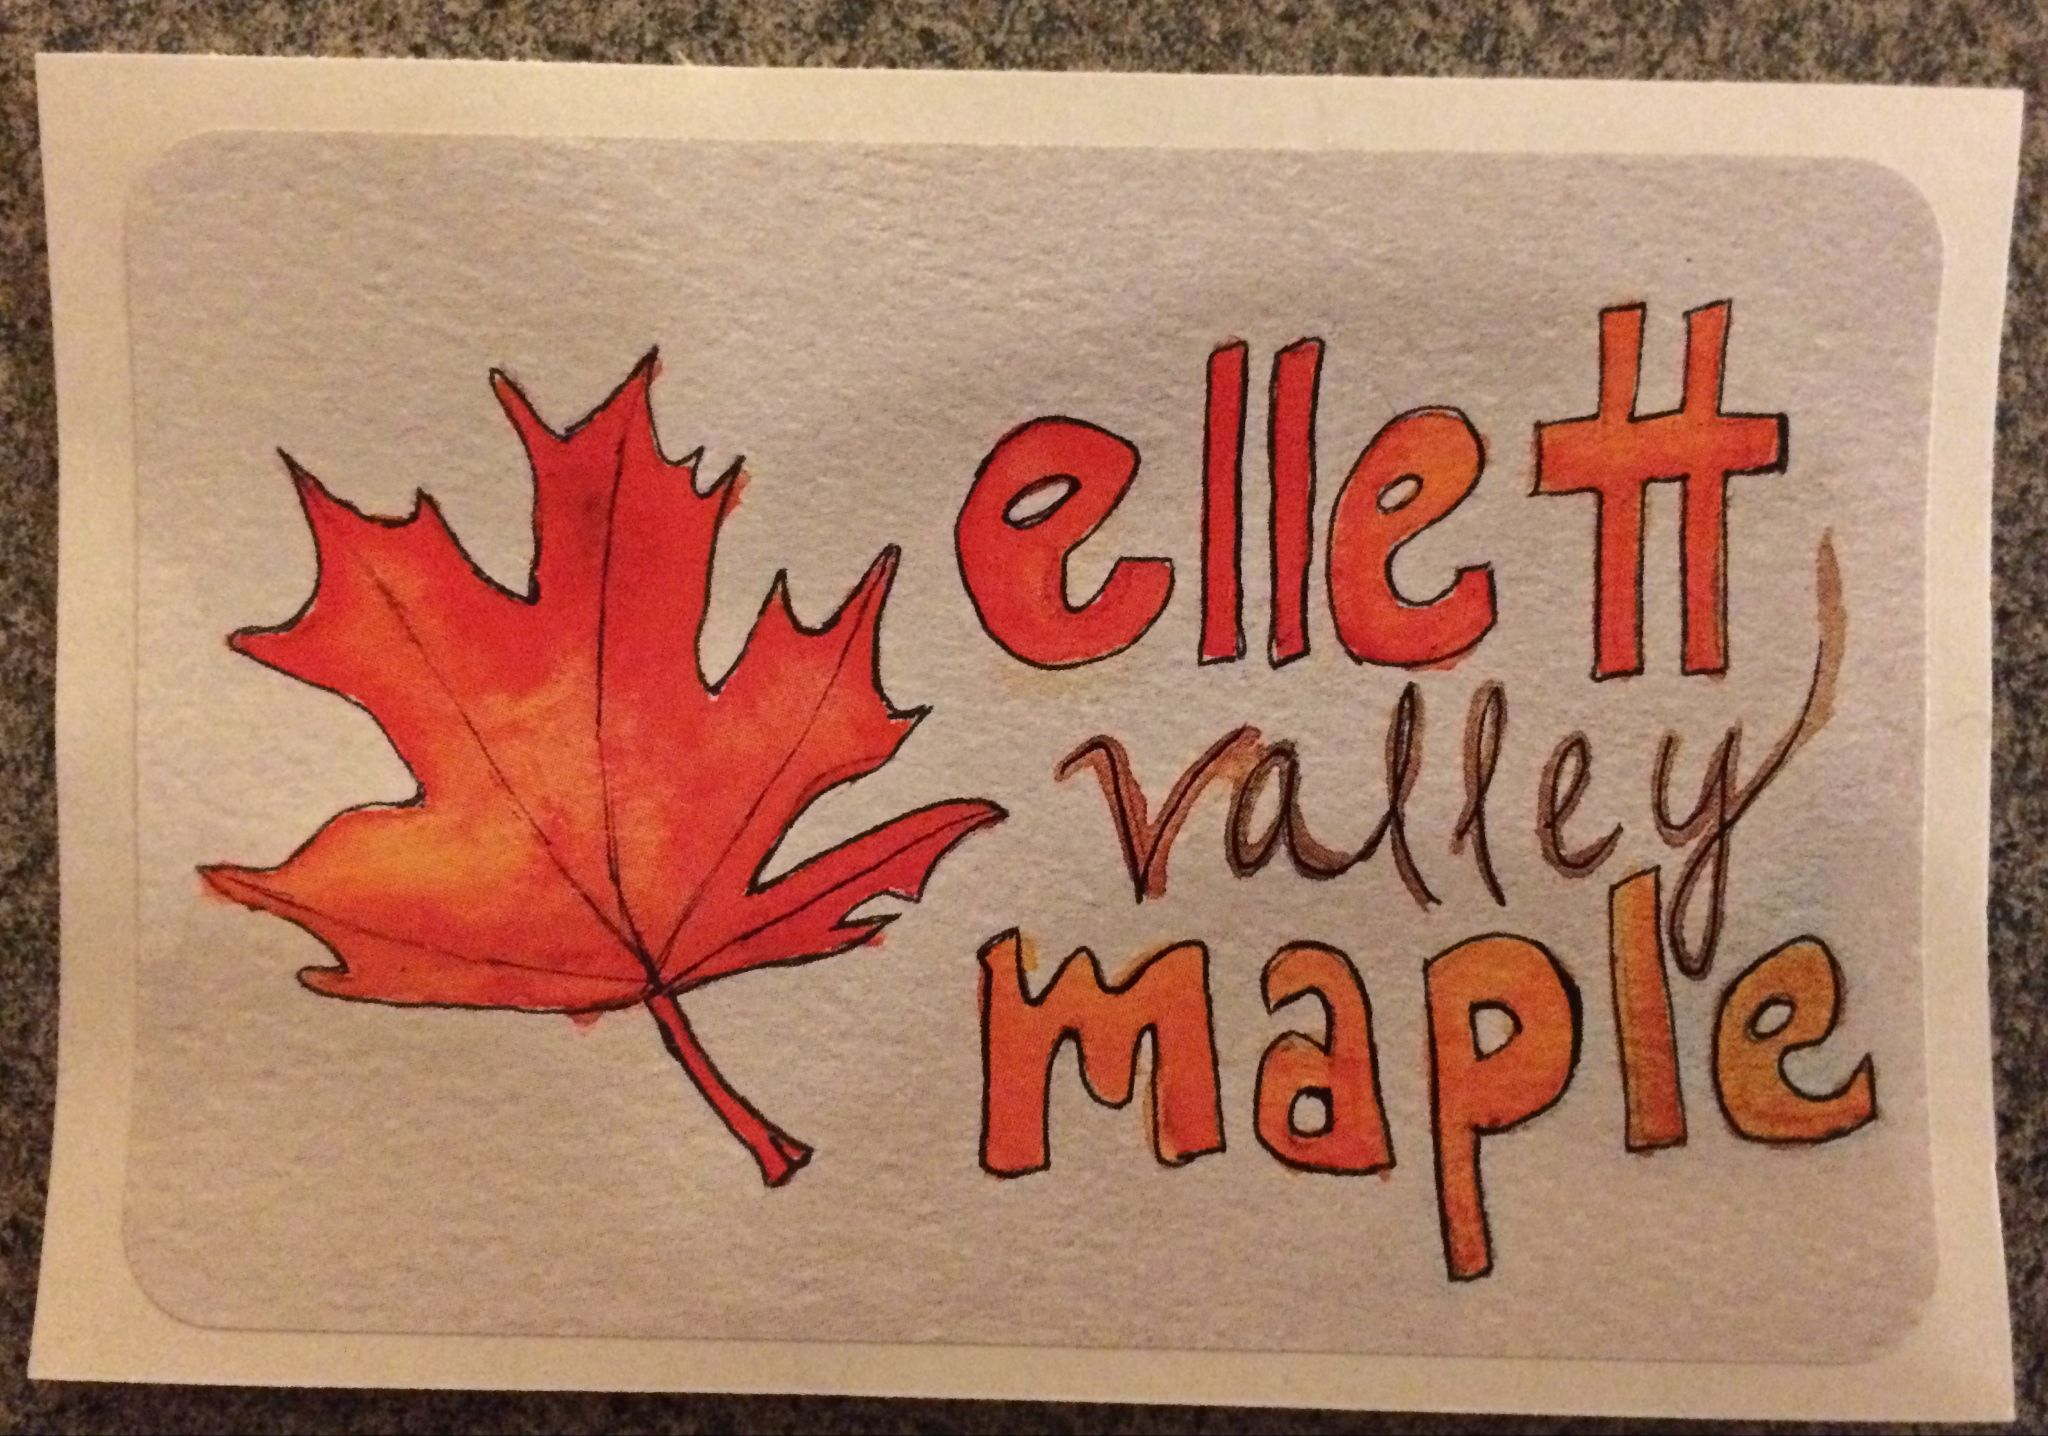 ellett
valley
maple